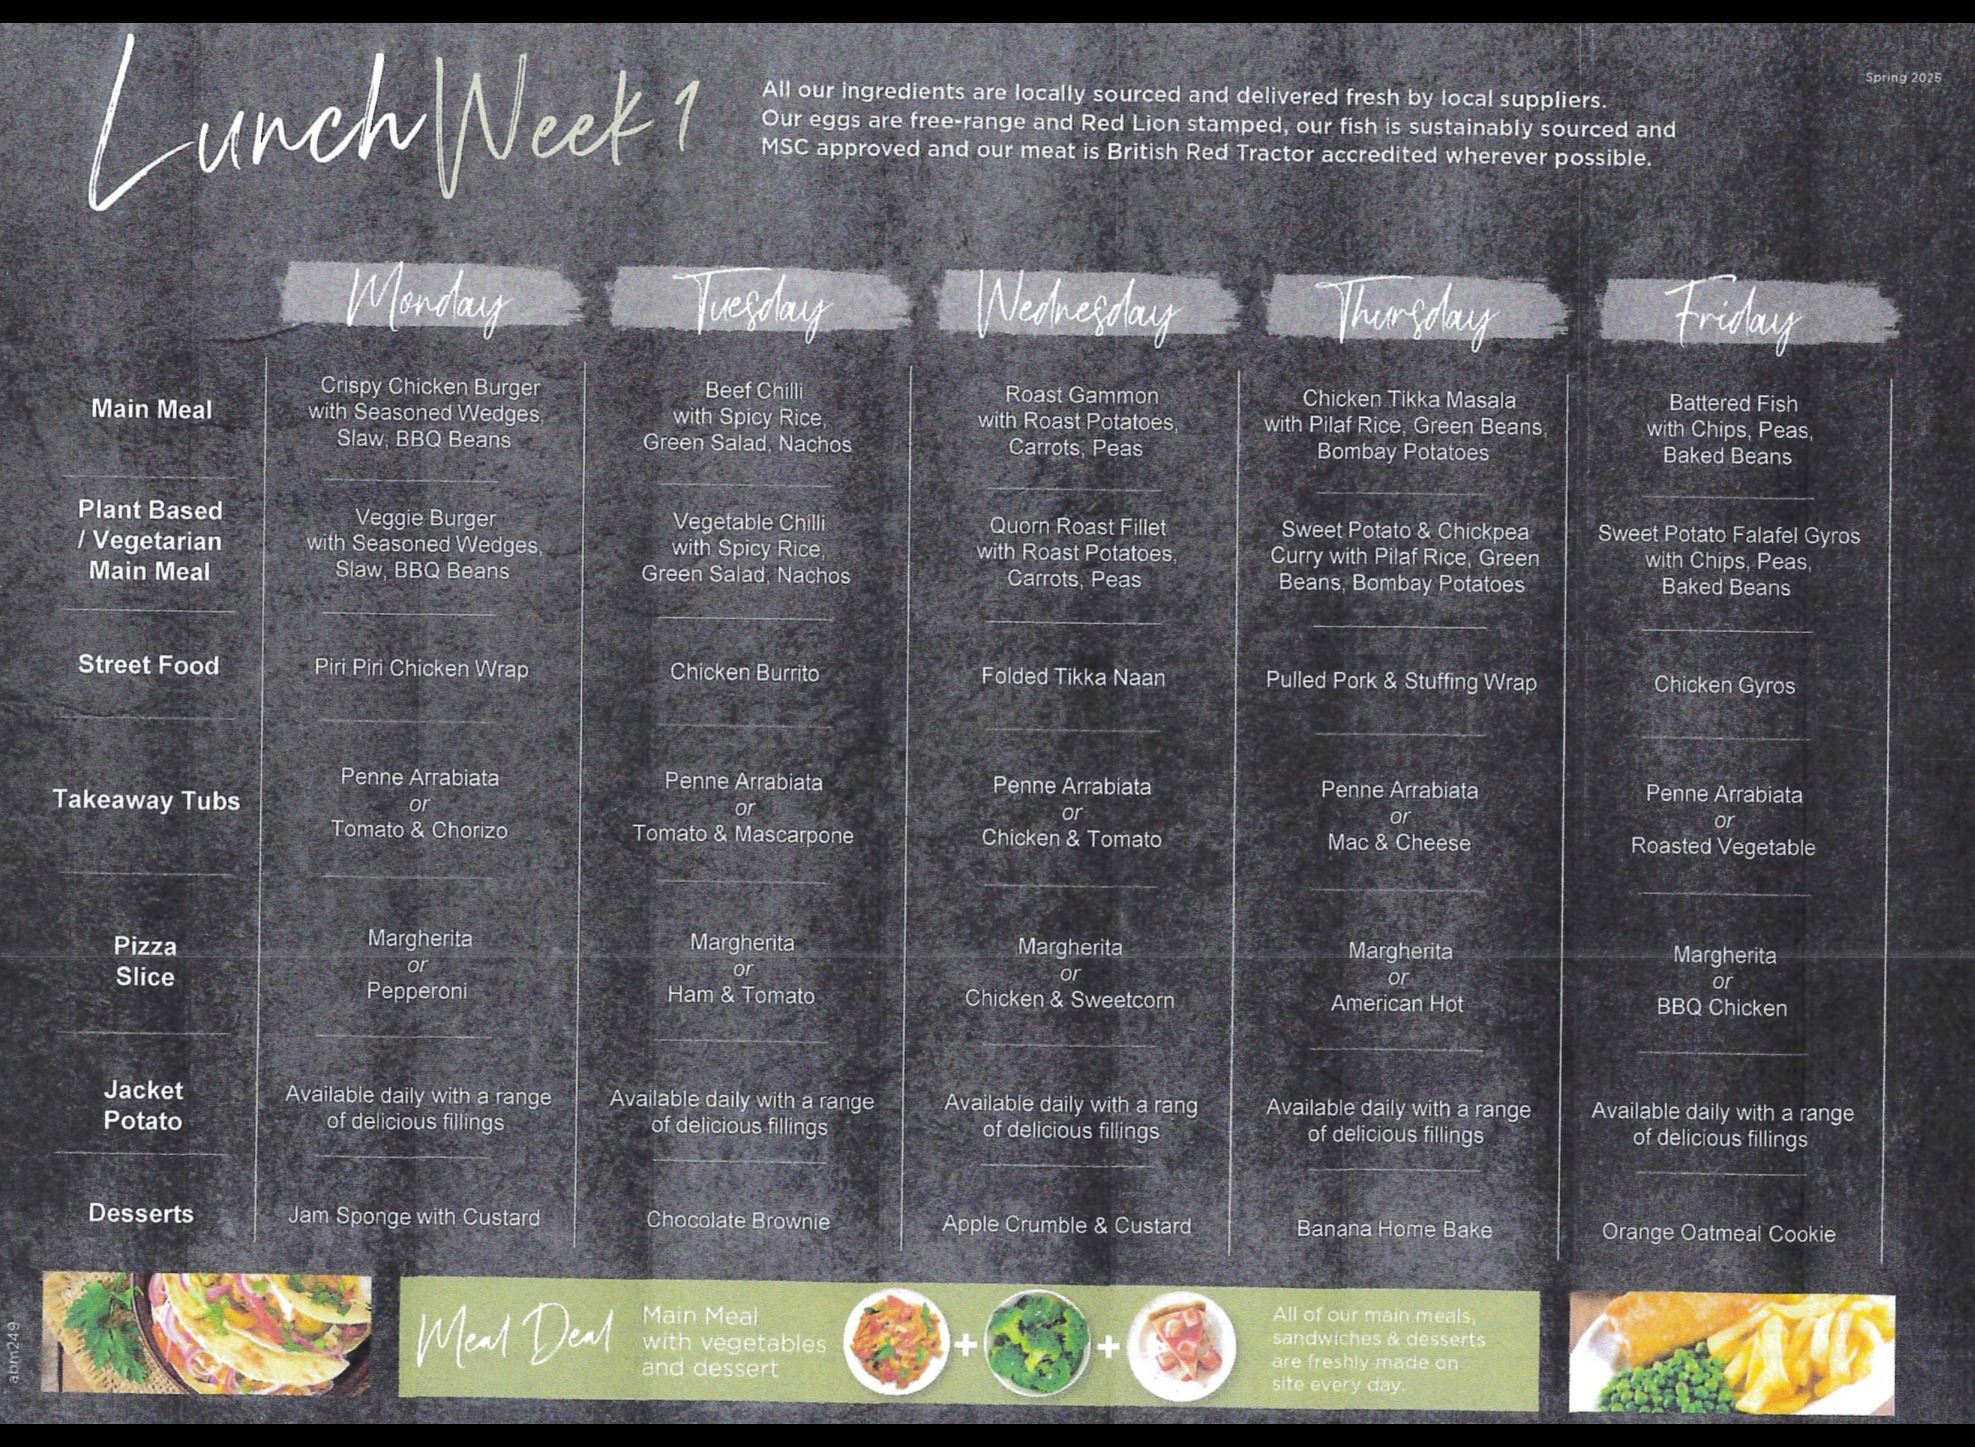 Lunch Week 1
All our ingredients are locally sourced and delivered fresh by local suppliers.
Our eggs are free-range and Red Lion stamped, our fish is sustainably sourced and
MSC approved and our meat is British Red Tractor accredited wherever possible.
Spring 2025
Monday
Tuesday
Wednesday
Thursday
Friday
Main Meal
Crispy Chicken Burger
with Seasoned Wedges,
Slaw, BBQ Beans
Beef Chilli
with Spicy Rice,
Green Salad, Nachos
Roast Gammon
with Roast Potatoes,
Carrots, Peas
Chicken Tikka Masala
with Pilaf Rice, Green Beans,
Bombay Potatoes
Battered Fish
with Chips, Peas,
Baked Beans
Plant Based
/ Vegetarian
Main Meal
Veggie Burger
with Seasoned Wedges,
Slaw, BBQ Beans
Vegetable Chilli
with Spicy Rice,
Green Salad, Nachos
Quorn Roast Fillet
with Roast Potatoes,
Carrots, Peas
Sweet Potato & Chickpea
Curry with Pilaf Rice, Green
Beans, Bombay Potatoes
Sweet Potato Falafel Gyros
with Chips, Peas,
Baked Beans
Street Food
Piri Piri Chicken Wrap
Chicken Burrito
Folded Tikka Naan
Pulled Pork & Stuffing Wrap
Chicken Gyros
Takeaway Tubs
Penne Arrabiata
or
Tomato & Chorizo
Penne Arrabiata
or
Tomato & Mascarpone
Penne Arrabiata
or
Chicken & Tomato
Penne Arrabiata
or
Mac & Cheese
Penne Arrabiata
or
Roasted Vegetable
Pizza
Slice
Margherita
or
Pepperoni
Margherita
or
Ham & Tomato
Margherita
or
Chicken & Sweetcorn
Margherita
or
American Hot
Margherita
or
BBQ Chicken
Jacket
Potato
Available daily with a range
of delicious fillings
Available daily with a range
of delicious fillings
Available daily with a rang
of delicious fillings
Available daily with a range
of delicious fillings
Available daily with a range
of delicious fillings
Desserts
Jam Sponge with Custard
Chocolate Brownie
Apple Crumble & Custard
Banana Home Bake
Orange Oatmeal Cookie
abm249
Meal Deal
Main Meal
with vegetables
and dessert
+
+
All of our main meals,
sandwiches & desserts
are freshly made on
site every day.